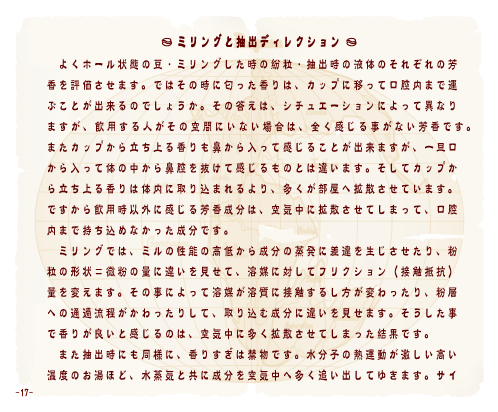 ミリングと抽出ディレクション
よくホール状態の豆・ミリングした時の紛粒・抽出時の液体のそれぞれの芳
香を評価させます。ではその時に匂った香りは、カップに移って口腔内まで運
ぶことが出来るのでしょうか。その答えは、シチュエーションによって異なり
ますが、飲用する人がその空間にいない場合は、全く感じる事がない芳香です。
またカップから立ち上る香りも鼻から入って感じることが出来ますが、一旦口
から入って体の中から鼻腔を抜けて感じるものとは違います。そしてカップか
ら立ち上る香りは体内に取り込まれるより、多くが部屋へ拡散させています。
ですから飲用時以外に感じる芳香成分は、空気中に拡散させてしまって、口腔
内まで持ち込めなかった成分です。
ミリングでは、ミルの性能の高低から成分の蒸発に差違を生じさせたり、粉
粒の形状＝微粉の量に違いを見せて、溶媒に対してフリクション（接触抵抗）
量を変えます。その事によって溶媒が溶質に接触するし方が変わったり、粉層
への通過流程がかわったりして、取り込む成分に違いを見せます。そうした事
で香りが良いと感じるのは、空気中に多く拡散させてしまった結果です。
また抽出時にも同様に、香りすぎは禁物です。水分子の熱運動が激しい高い
温度のお湯ほど、水蒸気と共に成分を空気中へ多く追い出してゆきます。サイ
-17-